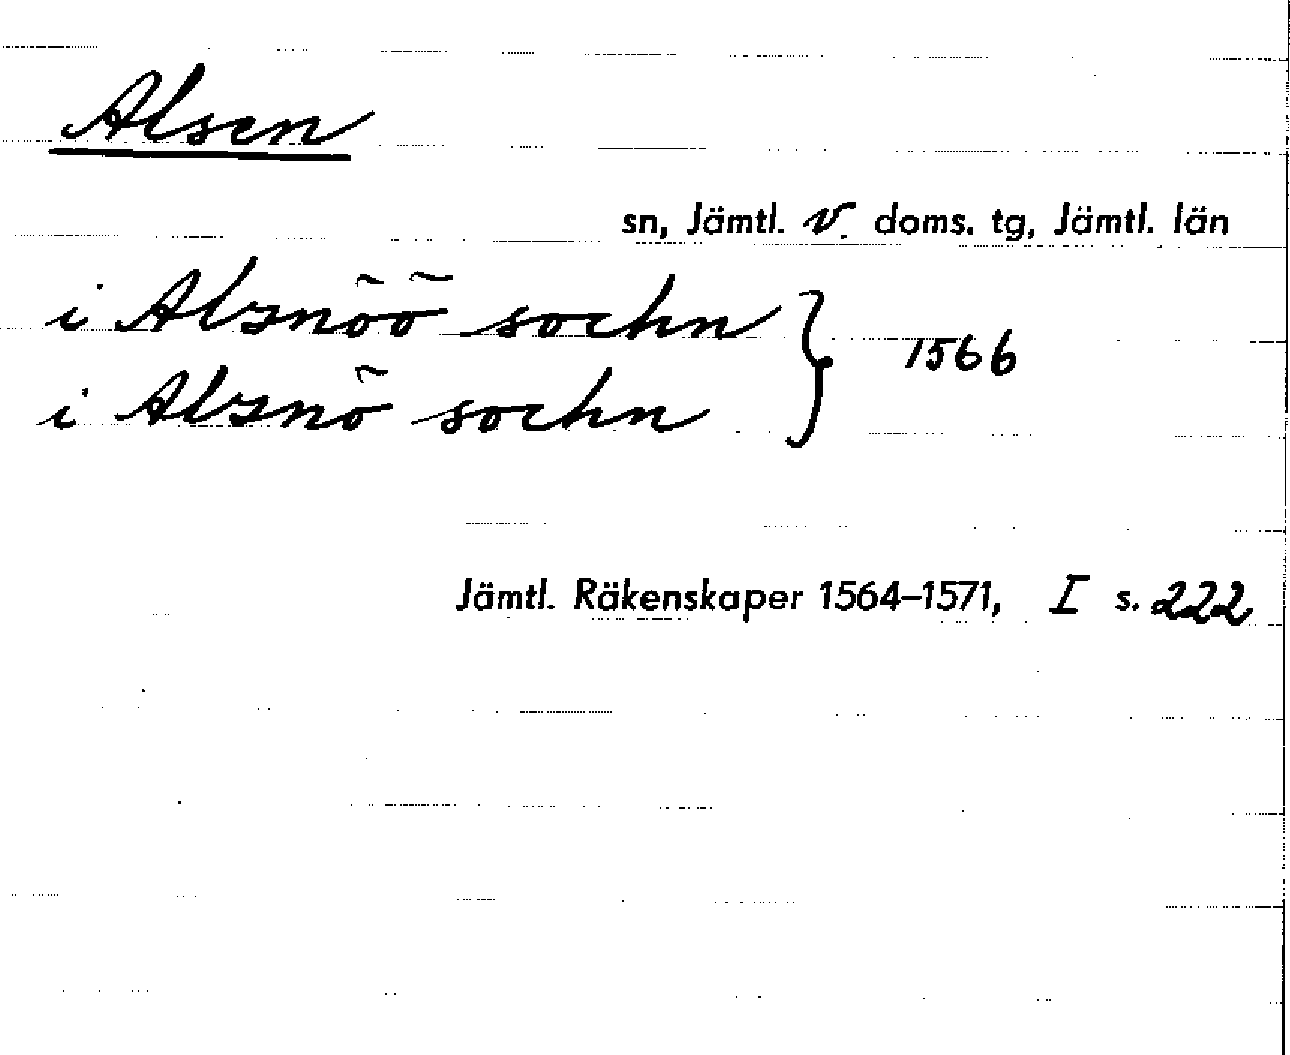 Alsen
sn, Jämtl. v. doms. tg, Jämtl. län
i Alsnöö sochn } 1566
i Alsnö sochn
Jämtl. Räkenskaper 1564–1571, I s. 222